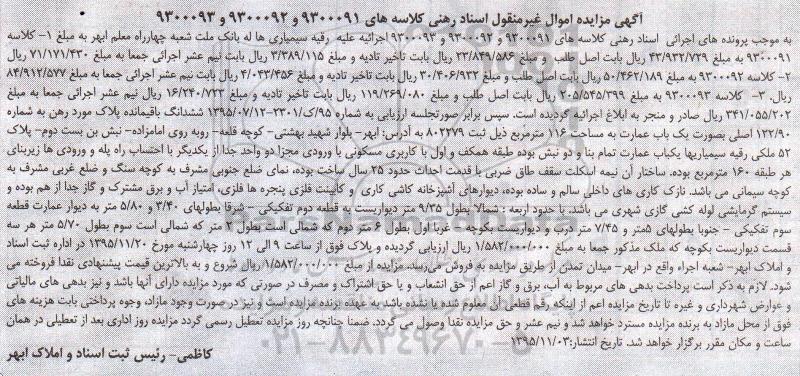 آگهی مزایده اموال غیرمنقول اسناد رهنی کلاسه های ۹۳۰۰۰۹۱ و ۹۳۰۰۰۹۲ و ۹۳۰۰۰۹۳
به موجب پرونده های اجرائی اسناد رهنی کلاسه های ۹۳۰۰۰۹۱ و ۹۳۰۰۰۹۲ و ۹۳۰۰۰۹۳ اجرائیه علیه رقیه سیمیاری ها له بانک ملت شعبه چهارراه معلم ابهر به مبلغ ۱- کلاسه
۹۳۰۰۰۹۱ به مبلغ ۴۳/۹۳۲/۷۲۹ ریال بابت اصل طلب و مبلغ ۲۳/۸۴۹/۵۸۶ ریال بابت تاخیر تادیه و مبلغ ۳/۳۸۹/۱۱۵ ریال بابت نیم عشر اجرائی جمعا به مبلغ ۷۱/۱۷۱/۴۳۰ ریال
۲- کلاسه ۹۳۰۰۰۹۲ به مبلغ ۵۰/۴۶۲/۱۸۹ ریال بابت اصل طلب و مبلغ ۳۰/۴۰۶/۹۳۲ ریال بابت تاخیر تادیه و مبلغ ۴/۰۴۳/۴۵۶ ریال بابت نیم عشر اجرائی جمعا به مبلغ ۸۴/۹۱۲/۵۷۷
ریال. ۳- کلاسه ۹۳۰۰۰۹۳ به مبلغ ۲۰۵/۵۴۵/۳۹۹ ریال بابت اصل طلب و مبلغ ۱۱۹/۲۶۹/۰۸۰ ریال بابت تاخیر تادیه و مبلغ ۱۶/۲۴۰/۷۲۳ ریال بابت نیم عشر اجرائی جمعا به مبلغ
۳۴۱/۰۵۵/۲۰۲ ریال صادر و منجر به ابلاغ اجرائیه گردیده است. سپس برابر صورتجلسه ارزیابی به شماره ۹۵/ک/۲۳۰۱-۱۳۹۵/۰۷/۱۲ ششدانگ باقیمانده پلاک مورد رهن به شماره
۱۲۲/۹۰ اصلی بصورت یک باب عمارت به مساحت ۱۱۶ مترمربع ذیل ثبت ۸۰۲۲۷۹ به آدرس: ابهر- بلوار شهید بهشتی- کوچه قلعه- روبه روی امامزاده- نبش بن بست دوم- پلاک
۵۲ ملکی رقیه سیمیاریها یکباب عمارت تمام بنا و دو نبش بوده طبقه همکف و اول با کاربری مسکونی با ورودی مجزا دو واحد جدا از یکدیگر با احتساب راه پله و ورودی ها زیربنای
هر طبقه ۱۶۰ مترمربع بوده. ساختار آن نیمه اسکلت سقف طاق ضربی با قدمت احداث حدود ۲۵ سال ساخت بوده، نمای ضلع جنوبی مشرف به کوچه سنگ و ضلع غربی مشرف به
کوچه سیمانی می باشد. نازک کاری های داخلی سالم و ساده بوده، دیوارهای آشپزخانه کاشی کاری و کابینت فلزی پنجره ها فلزی، امتیاز آب و برق مشترک و گاز جدا از هم بوده و
سیستم گرمایشی لوله کشی گازی شهری می باشد، با حدود اربعه: شمالا بطول ۹/۳۵ متر دیواریست به قطعه دوم تفکیکی - شرقا بطولهای ۳/۴۰ و ۵/۸۰ متر به دیوار عمارت قطعه
سوم تفکیکی - جنوبا بطولهای ۵متر و ۷/۴۵ متر درب و دیواریست بکوچه - غربا اول بطول ۶ متر دوم که شمالی است بطول ۲ متر که شمالی است سوم بطول ۵/۷۰ متر هر سه
قسمت دیواریست بکوچه که ملک مذکور جمعا به مبلغ ۱/۵۸۲/۰۰۰/۰۰۰ ریال ارزیابی گردیده و پلاک فوق از ساعت ۹ الی ۱۲ روز چهارشنبه مورخ ۱۳۹۵/۱۱/۲۰ در اداره ثبت اسناد
و املاک ابهر- شعبه اجراء واقع در ابهر- میدان تمدن از طریق مزایده به فروش می‌رسد. مزایده از مبلغ ۱/۵۸۲/۰۰۰/۰۰۰ ریال شروع و به بالاترین قیمت پیشنهادی نقدا فروخته می
شود. لازم به ذکر است پرداخت بدهی های مربوط به آب، برق و گاز اعم از حق انشعاب و یا حق اشتراک و مصرف در صورتی که مورد مزایده دارای آنها باشد و نیز بدهی های مالیاتی
و عوارض شهرداری و غیره تا تاریخ مزایده اعم از اینکه رقم قطعی آن معلوم شده یا نشده باشد به عهده برنده مزایده است و نیز در صورت وجود مازاد، وجوه پرداختی بابت هزینه های
فوق از محل مازاد به برنده مزایده مسترد خواهد شد و نیم عشر و حق مزایده نقدا وصول می گردد. ضمنا چنانچه روز مزایده تعطیل رسمی گردد مزایده روز اداری بعد از تعطیلی در همان
ساعت و مکان مقرر برگزار خواهد شد. تاریخ انتشار: ۱۳۹۵/۱۱/۰۳
کاظمی- رئیس ثبت اسناد و املاک ابهر
۰۲۱-۸۸۳۴۹۶۷۰